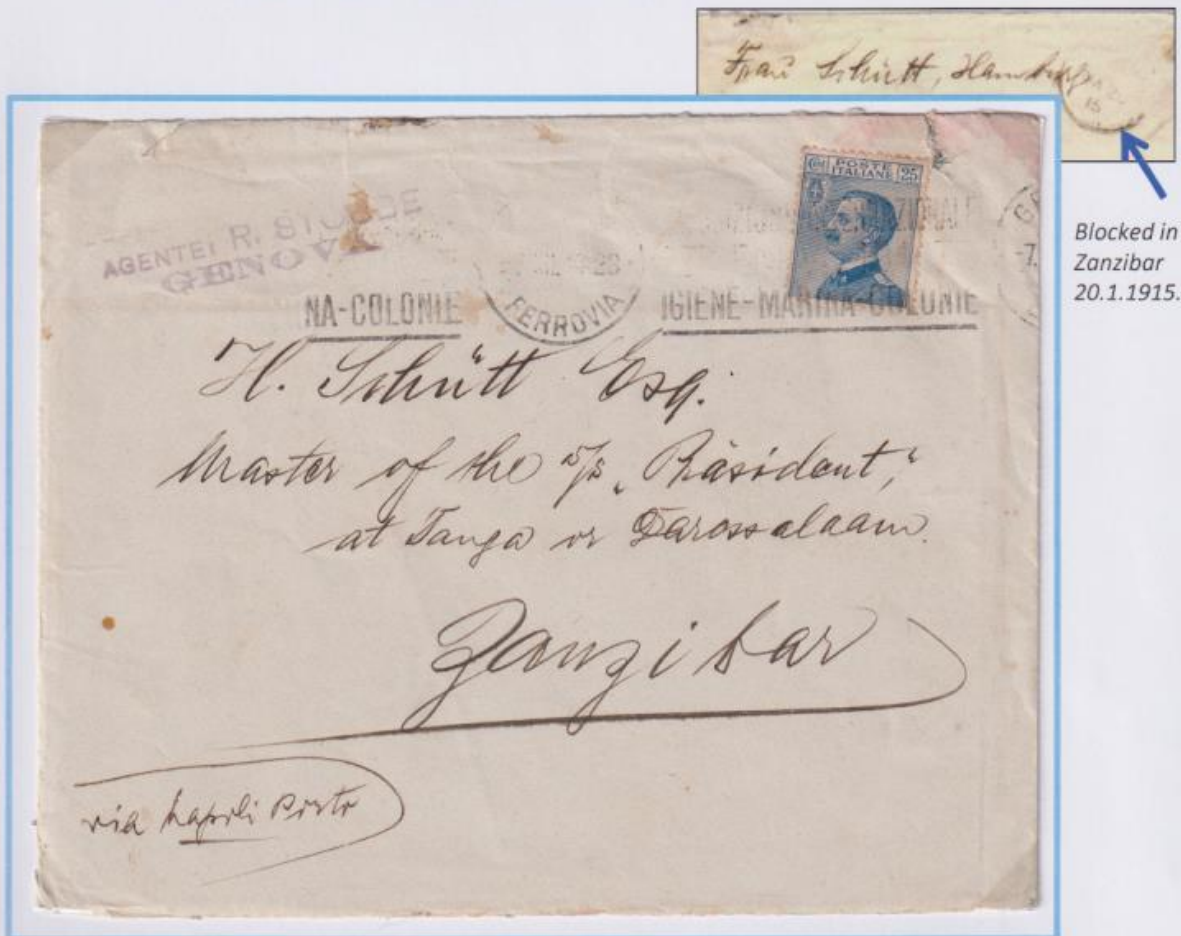 Frau Schütt, Hamburg
15
Blocked in
Zanzibar
20.1.1915.
POSTE
ITALIANE
25
AGENTE: R.
GENOVA
NA-COLONIE
FERROVIA
IGIENE-MARINA-COLONIE
H. Schütt Esq.
Master of the s/s "Präsident,"
at Tanga or Daressalaam.
Zanzibar
via Napoli Porto